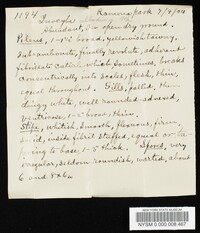 1194 Ramona park 7/8/04
Inocybe
Abundant, on open dry ground.
Pileus, 1-2½ broad, yellowish tawny,
sub-umbonate, finally revolute, adherent
fibrillate cuticle which sometimes breaks
concentrically into scales, flesh, thin,
equal throughout. Gills, pallid, then
dingy white, well rounded adnexed,
ventricose, 1-2 broad, thin.
Stipe, whitish, smooth, flexuous, firm,
solid, inside fibril stuffed, equal or ta-
to base, 1-5 thick. Spores, very
irregular, seldom roundish, warted, about
6 and 8x6u
NEW YORK STATE MUSEUM
NYSM 0 000 008 467